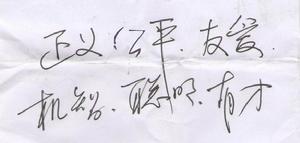 正义、公平、友爱、
机智、聪明、有才